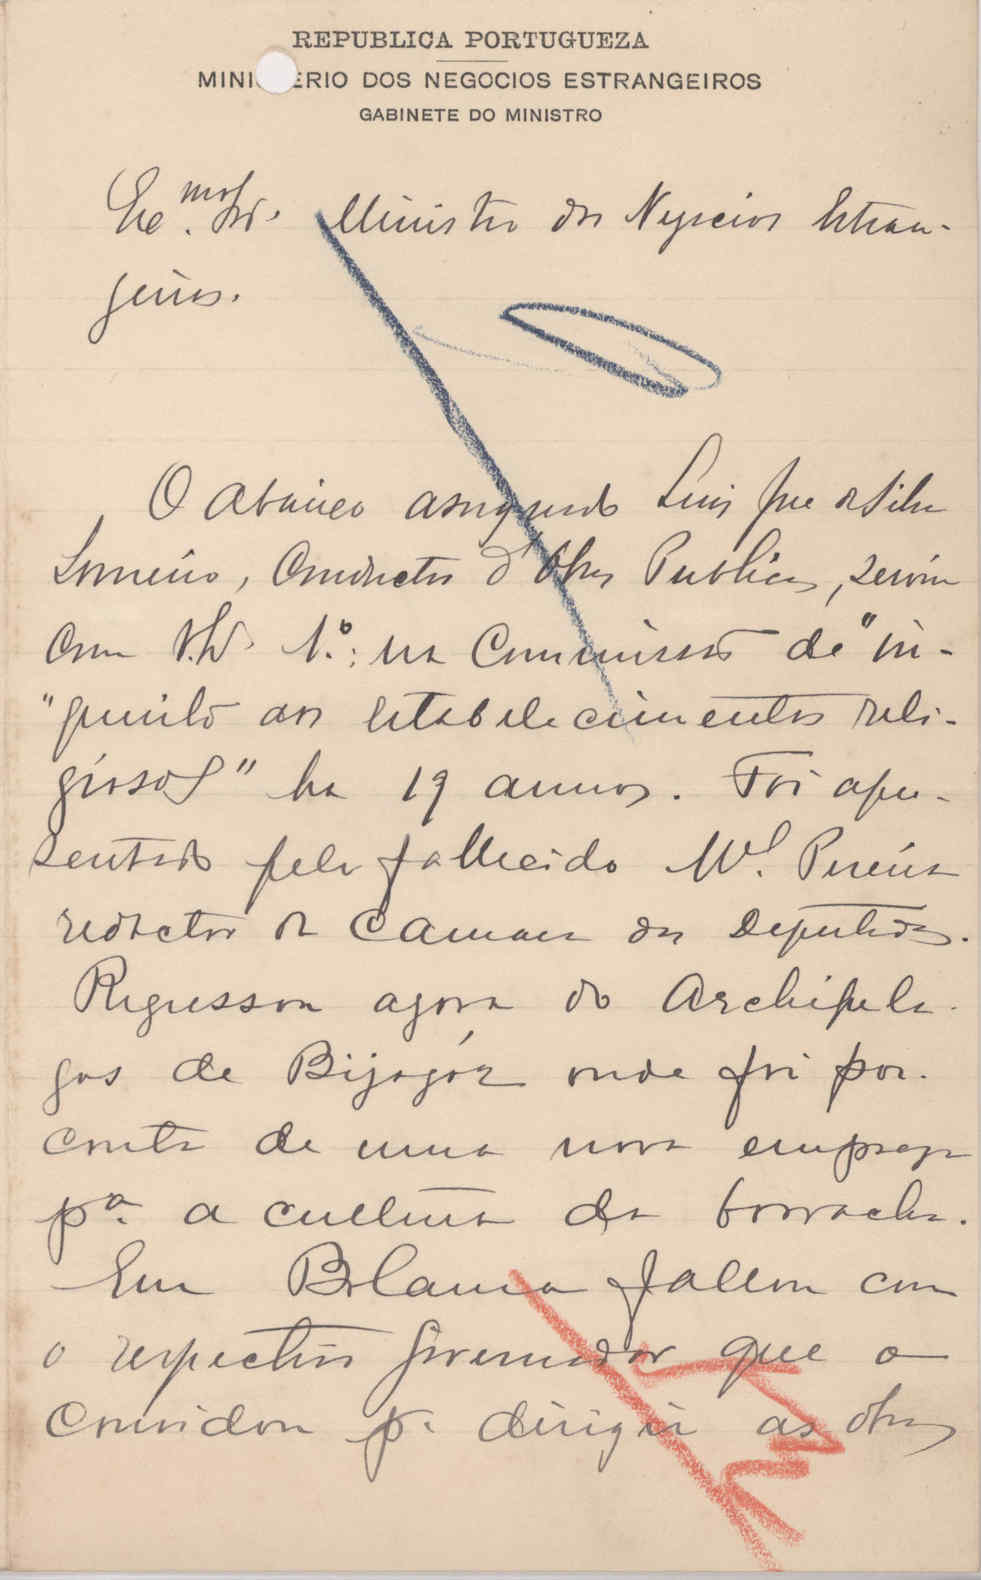 REPUBLICA PORTUGUEZA
MINISTERIO DOS NEGOCIOS ESTRANGEIROS
GABINETE DO MINISTRO
Exc.mo Sr. Ministro dos Negocios Estran-
geiros.
O abaixo assignado Luis José da Silva
Conductor d'Obras Publicas, serviu
com V. Ex. 1.º: na Commissão de "in-
"querito aos estabelecimentos reli-
giosos" ha 19 annos. Foi apre-
sentado pelo fallecido M.el Pereira
redactor da Camara dos Deputados.
Regressou agora do Archipela-
gos de Bijagóz onde foi por
conta de uma nova empreza
p.a a cultura da borracha.
Em Bolama fallou com
o respectivo Governador que o
convidou p.a dirigir as obras